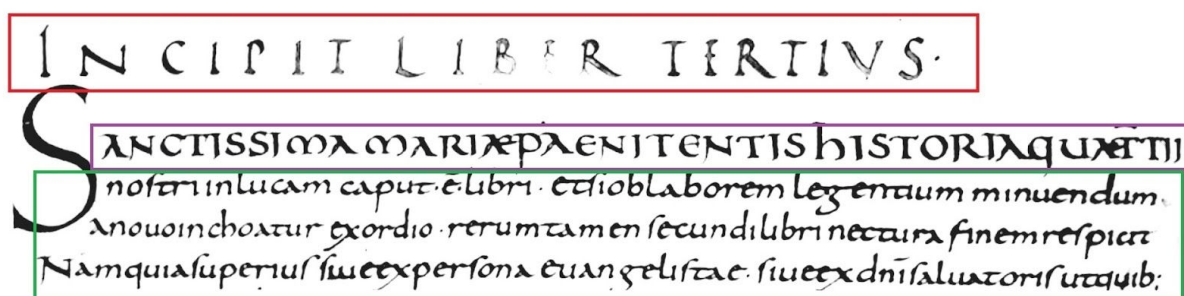 INCIPIT LIBER TERTIVS·
SANCTISSIMA MARIÆ PAENITENTIS hISTORIA QUAE
nostri in lucam caput· ē libri· et si ob laborem legentium minuendum·
a nouo inchoatur exordio· rerum tamen secundi libri nectura finem respicit
Nam quia superius siue ex persona euangelistae· siue ex dn̄i saluatoris utquib;